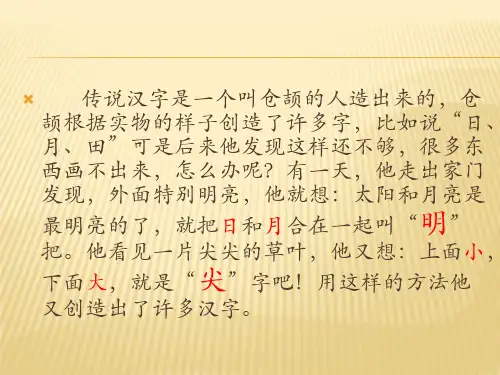 传说汉字是一个叫仓颉的人造出来的，仓
颉根据实物的样子创造了许多字，比如说“日、
月、田”可是后来他发现这样还不够，很多东
西画不出来，怎么办呢？有一天，他走出家门
发现，外面特别明亮，他就想：太阳和月亮是
最明亮的了，就把日和月合在一起叫“明”
把。他看见一片尖尖的草叶，他又想：上面小，
下面大，就是“尖”字吧！用这样的方法他
又创造出了许多汉字。